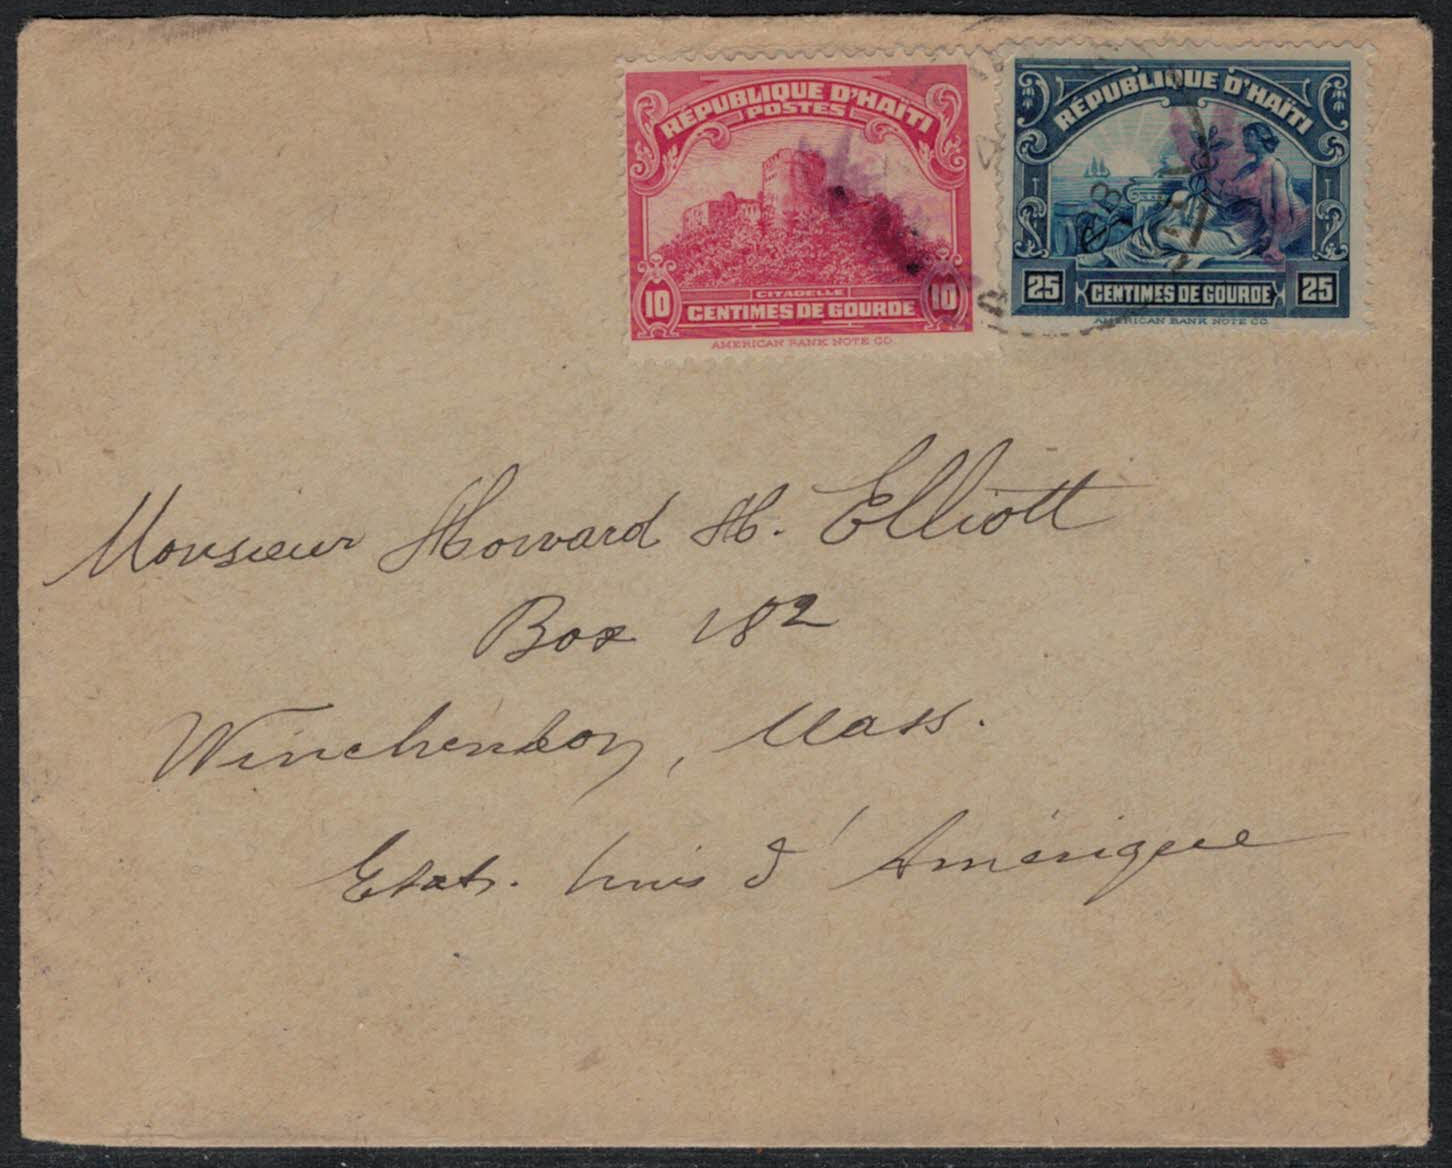 RÉPUBLIQUE D'HAÏTI
POSTES
CITADELLE
10 CENTIMES DE GOURDE 10
AMERICAN BANK NOTE CO.
RÉPUBLIQUE D'HAÏTI
25 CENTIMES DE GOURDE 25
AMERICAN BANK NOTE CO.
Monsieur Howard H. Elliott
Box 182
Winchendon, Mass.
Etats. Unis d'Amérique